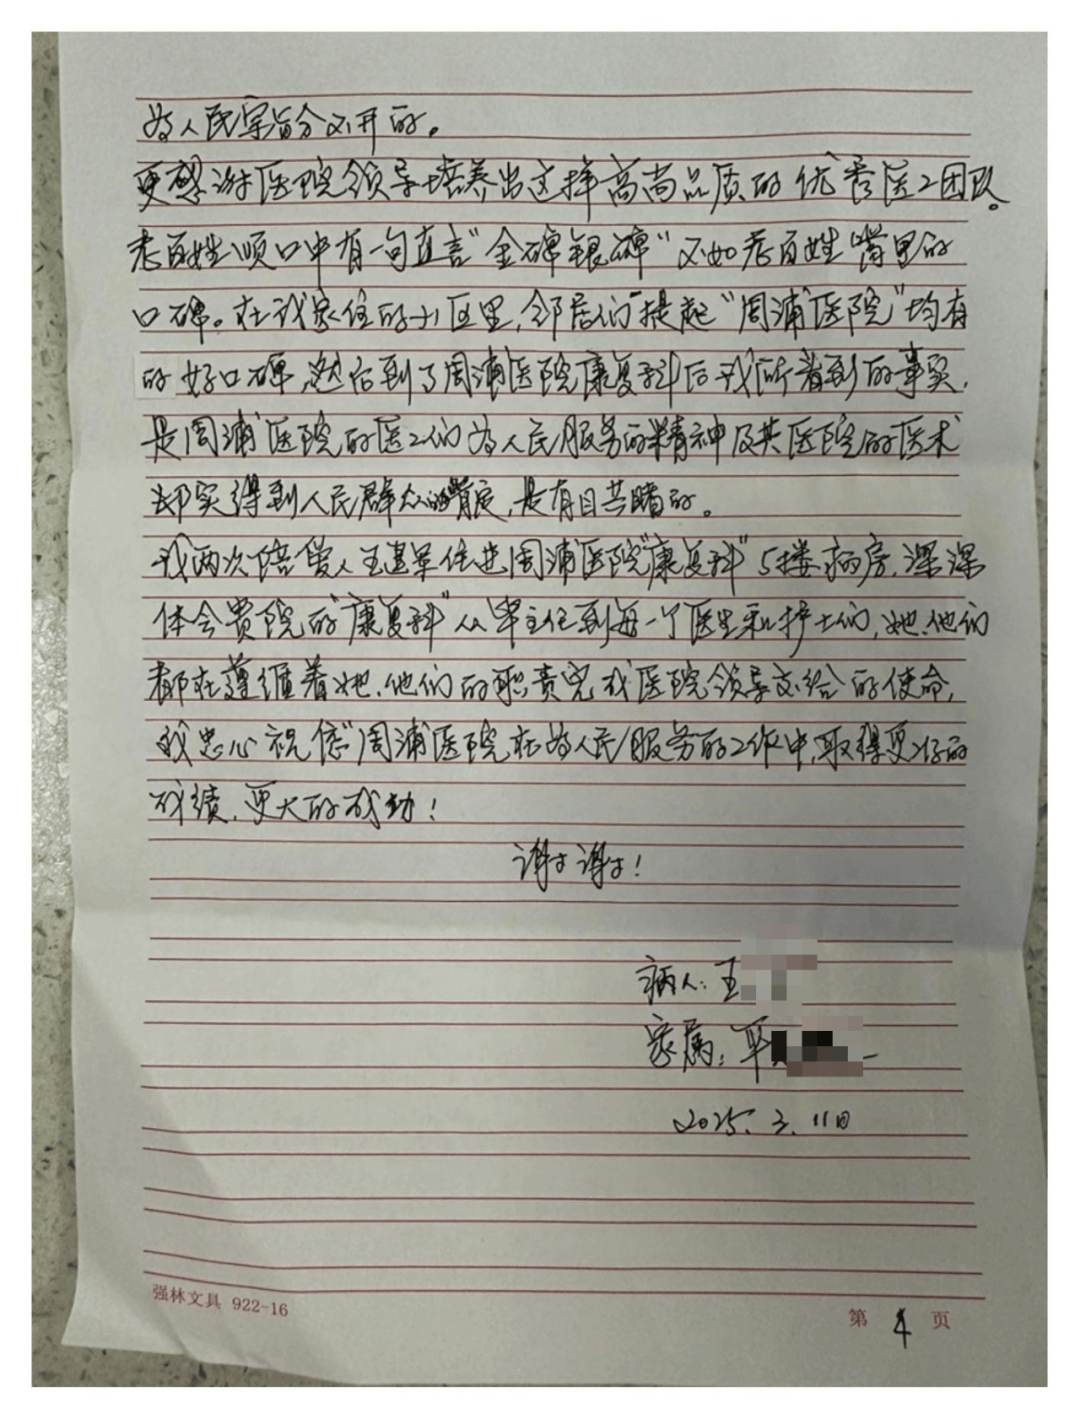 为人民宗旨分不开的。
更感谢医院领导培养出这样高尚品质的优秀医工团队。
老百姓顺口中有一句直言"金碑银碑"不如老百姓嘴里的
口碑。在我家住的小区里,邻居们提起"周浦医院"均有
的好口碑,到了周浦医院康复科后我所看到的事实,
是周浦医院的医工们为人民服务的精神及其医院的医术
却实得到人民群众的肯定,是有目共睹的。
我两次陪爱人王进周浦医院"康复科"5楼病房,深深
体会贵院的"康复科"从毕主任到每一个医生和护士们,她、他们
都在遵循着她、他们的职责完成医院领导交给的使命,
我忠心祝愿"周浦医院在为人民服务的工作中,取得更好的
成绩,更大的成功!
谢谢谢谢!
病人:王
家属:
2025.3.11日
强林文具 922-16
第 4 页